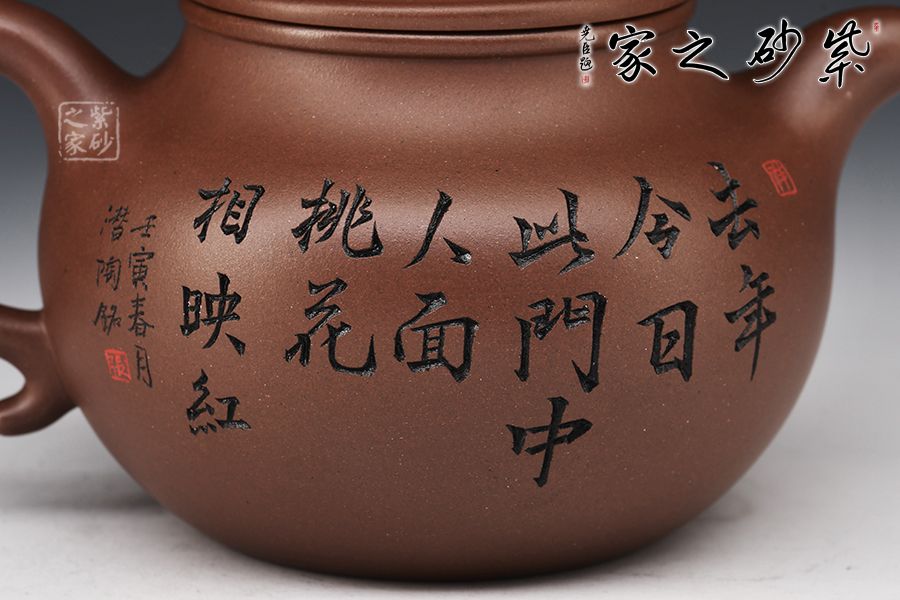 紫砂之家
尧臣题
紫砂之家
去年
今日
此門中
人面
挑花
相映紅
壬寅春月
潛陶銘